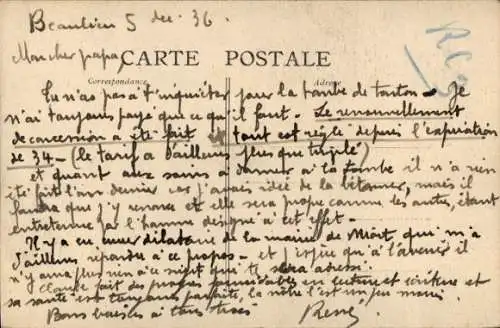 Beaulieu 5 dec. 36
Mon cher papa,
CARTE POSTALE
Correspondance
Adresse
Tu n'as pas à t'inquiéter pour la tombe de tonton - Je
n'ai toujours payé que ce qu'il faut - Le renouvellement
de concession a été fait tout est réglé depuis l'expiration
de 34 - (le tarif a d'ailleurs plus que triplé)
et quant aux soins à donner à la tombe il n'a rien
été fait l'an dernier car j'avais idée de la bitumer, mais il
faudra que j'y renonce et elle sera propre comme les autres, étant
entretenue par l'homme désigné à cet effet -
Il y a eu erreur de la mairie de Niort qui m'a
d'ailleurs répondu à ce propos - et j'espère qu'à l'avenir il
n'y aura plus rien à ce sujet qui te sera adressé.
Claude fait des progrès en lecture et écriture et
sa santé est toujours parfaite, la nôtre l'est un peu moins.
Bons baisers à tous trois
René